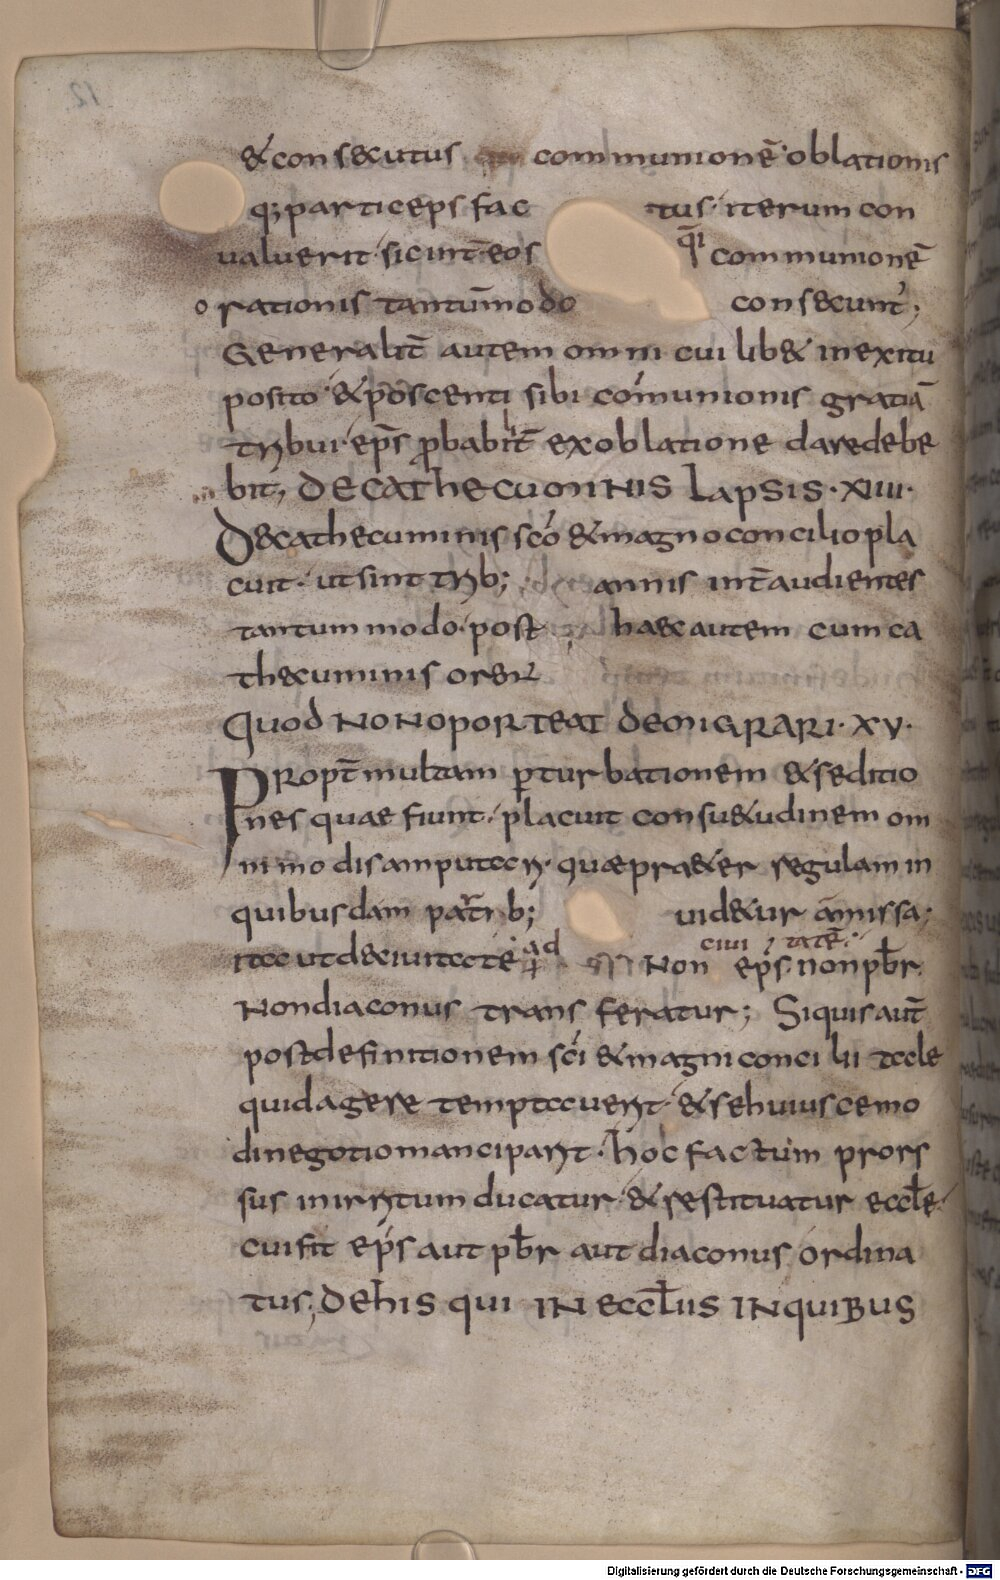 & consecutus communionē oblationis
q; particeps fac tus. iterum con
ualuerit. sic int̄ eos q̄i communionē
orationis tantūmodo consecunt̓;
Generalit̄ autem omni cui lib& in exitu
posito. & poscenti sibi cómunionis gratiā
trib​ui. eps̄ probabilit̄ ex oblatione dare debe
bit, DE CATHECUMINIS LAPSIS. XIIII.
De cathecuminis scō & magno concilio pla
cuit. ut sint trib; annis int̄ audientes
tantum modo. post haec autem cum ca
thecuminis orent
QUOD NON OPORTEAT DEMIGRARI. XV.
Propt̄ multam perturbationem & seditio
nes quae fiunt. placuit consu&udinem om
nimodis amputari. quae praeter regulam in
quibusdam partib; uidetur amissa;
ita ut de ciuitate ad ciui tatē. Non eps̄. non pb̄r.
Non diaconus transferatur; Si quis aut̄
post definitionem scī & magni concilii tale
quid agere temptauerit. & se huiuscemo
di negotio manciparit. hoc factum prors
sus in irritum ducatur. & restituatur eccl̄e.
cui fit eps̄ aut pb̄r aut diaconus ordina
tus; DE HIS QUI IN ECCL̄IIS IN QUIBUS
12
Digitalisierung gefördert durch die Deutsche Forschungsgemeinschaft - DFG